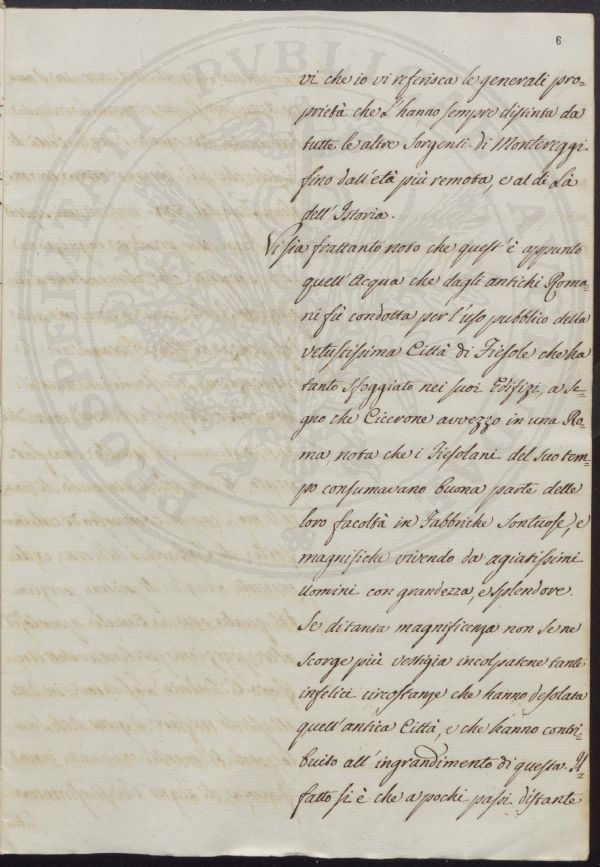 6
vi che io vi referisca le generali pro-
prietà che l'hanno sempre distinta da
tutte le altre sorgenti di Montereggi
fino dall'età più remota, e al di là
dell'Istoria.
Vi sia frattanto noto che quest'è appunto
quell'Acqua che dagli antichi Roma-
ni fù condotta per l'uso pubblico della
vetustissima Città di Fiesole che ha
tanto sfoggiato nei suoi Edifizi, a se-
gno che Cicerone avvezzo in una Ro-
ma, nota che i Fiesolani del suo tem-
po consumavano buona parte delle
loro facoltà in Fabbriche sontuose, e
magnifiche vivendo da agiatissimi
uomini con grandezza, e splendore.
Se di tanta magnificenza non se ne
scorge più vestigia incolpatene tante
infelici circostanze che hanno desolata
quell'antica Città, e che hanno contri-
buito all'ingrandimento di questa. Il
fatto si è che a pochi passi distante
PROSPERITATI PVBLICAE AVG